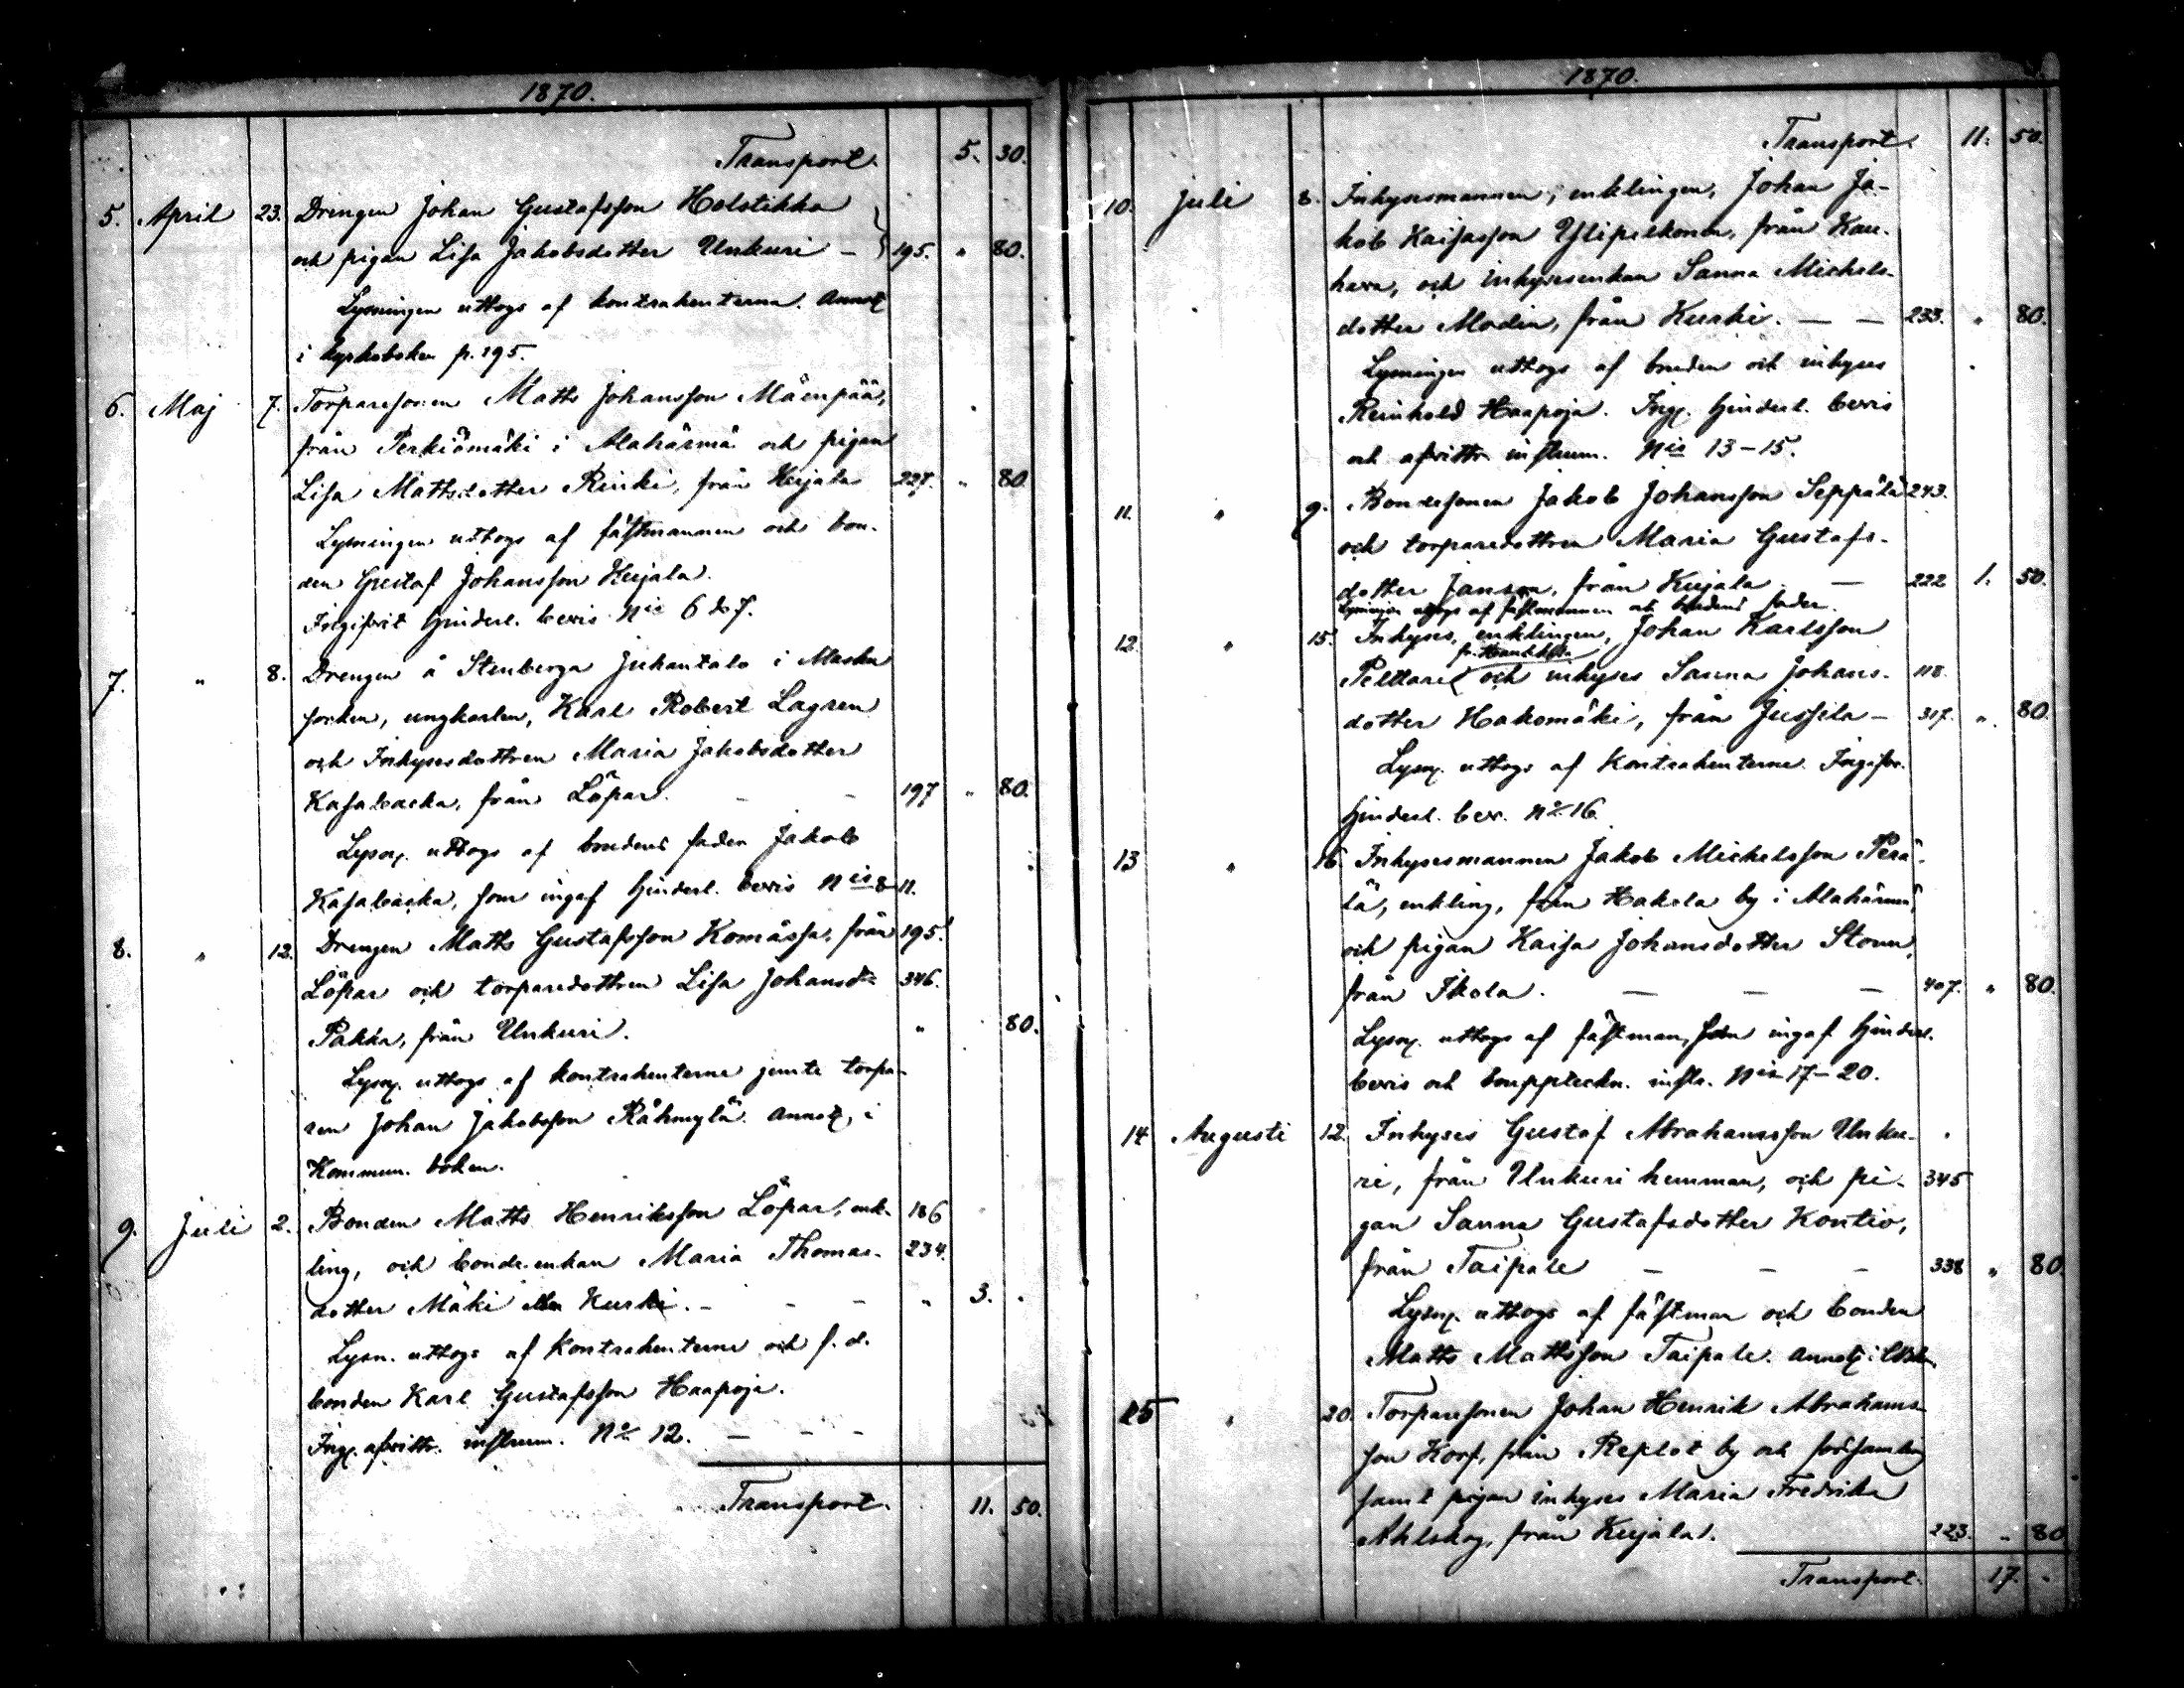 1870.
Transport. 5. 30.
5. April 23. Drengen Johan Gustafsson Holstikka
och pigan Lisa Jakobsdotter Unkuri – 195. " 80.
Lysningen uttogs af kontrahenterna. Annot
i kyrkoboken p. 195.
6. Maj 7. Torparesonen Matts Johansson Mäenpää,
från Perkiömäki i Alahärmä och pigan
Lisa Mattsdotter Rinki, från Kujala 227. " 80
Lysningen uttogs af fästmannen och bon-
den Gustaf Johansson Kujala.
Ingifvit hinderl. bevis Nis 6 & 7.
7. " 8. Drengen å Stenberga Juhantalo i Masku
socken, ungkarlen, Karl Robert Lagren
och Inhysesdottren Maria Jakobsdotter
Kasabacka, från Löpar. – – 197 " 80.
Lysn. uttogs af brudens fader Jakob
Kasabacka, som ingaf hinderl. bevis Nis 8–11.
8. " 12. Drengen Matts Gustafsson Komässa, från 195.
Löpar och torparedottren Lisa Johansdr 346.
Pakka, från Unkuri. " 80.
Lysn. uttogs af kontrahenterne jemte torpa-
ren Johan Jakobsson Råhmylä. Annot. i
Kommun. boken.
9. Juli 2. Bonden Matts Henriksson Löpar, enk- 186
ling, och bonde-enkan Maria Thomas- 234.
dotter Mäki Kurki. – – – " 3. "
Lysn. uttogs af Kontrahenterne och f. d.
bonden Karl Gustafsson Haapoja.
Ing. afvittr. instrum. No 12. – – –
Transport. 11. 50.
1870.
Transport. 11. 50.
10. Juli 8. Inhysesmannen, enklingen, Johan Ja-
kob Kaisasson Ylipelkonen, från Kau-
hava, och inhysesenkan Sanna Michels-
dotter Modin, från Kurki. – – 233. " 80.
Lysningen uttogs af bruden och inhyses
Reinhold Haapoja. Ing. hinderl. bevis
och afvittr. instrum. Nis 13–15.
11. " 9. Bondesonen Jakob Johansson Seppälä 243.
och torparedottren Maria Gustafs-
dotter Janson, från Kujala. – 222 1. 50.
Lysningen uttogs af fästmannen och brudens fader.
12. " 15. Inhyses, enklingen, Johan Karlsson
Pelttari och inhyses Sanna Johans- 118.
dotter Hakomäki, från Jussila – 317. " 80.
Lysn. uttogs af Kontrahenterne. Ingifv.
hinderl. bev. No 16.
13 " 16. Inhysesmannen Jakob Michelsson Perä-
lä, enkling, från Hakola by i Alahärmä,
och pigan Kaisa Johansdotter Storm,
från Ikola. – – – 407. " 80.
Lysn. uttogs af fästman, som ingaf hinderl.
bevis och bouppteckn. instr. Nis 17–20.
14 Augusti 12. Inhyses Gustaf Abrahamsson Unku-
ri, från Unkuri hemman, och pi- 345
gan Sanna Gustafsdotter Kontio,
från Taipale – – – 338 " 80.
Lysn. uttogs af fästman och bonden
Matts Mattsson Taipale. Annot. i
15 " 20. Torparesonen Johan Henrik Abrahams-
son Korf, från Replot by och församling
samt pigan inhyses Maria Fredrika
Ahlskog, från Kujala. 223. " 80
Transport. 17. "